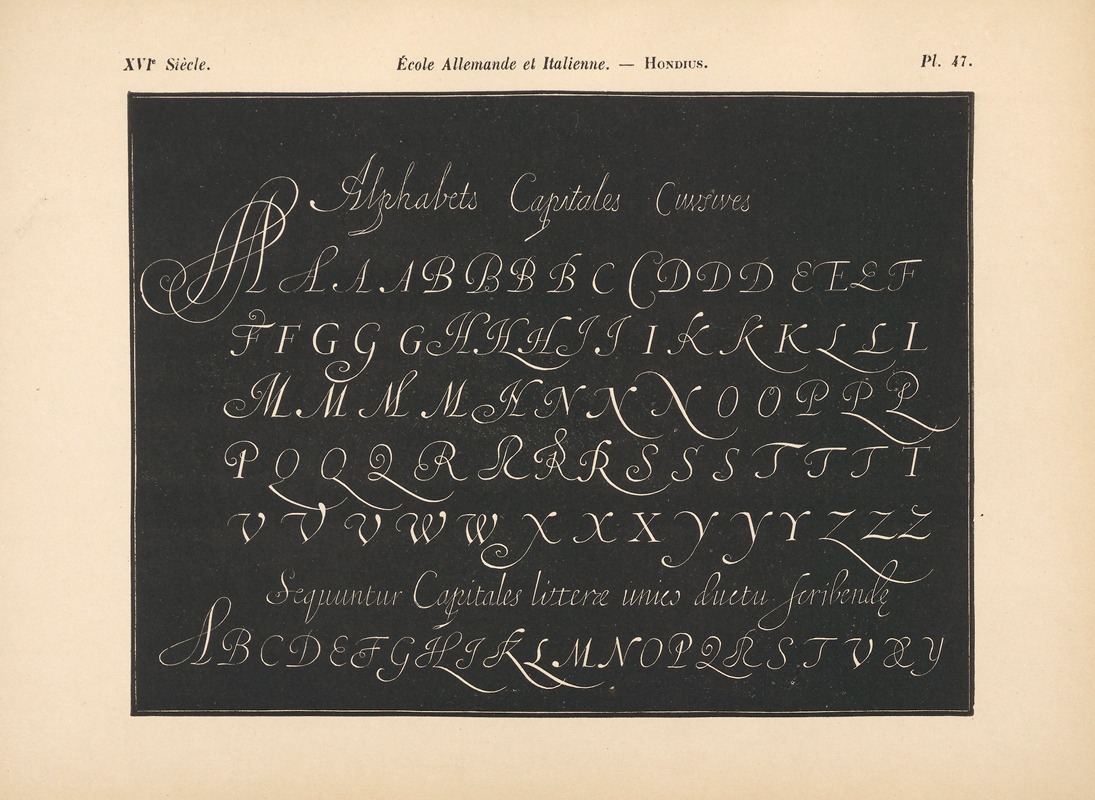 XVIᵉ Siècle. École Allemande et Italienne. — Hondius. Pl. 47.
Alphabets Capitales Cursives
A A A A B B B B C C D D D E E E F
F F G G G H H H I I I K K K L L L
M M M M N N N N O O P P P
P Q Q Q R R R R S S S T T T T
V V V W W X X X Y Y Y Z Z Z
Sequuntur Capitales litteræ unico ductu scribendę
A B C D E F G H I K L M N O P Q R S T V X Y